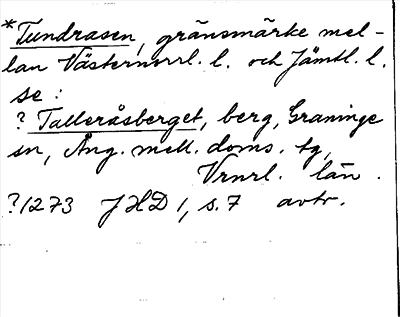 *Tundrasen, gränsmärke mel-
lan Västernorrl. l. och Jämtl. l.
se:
? Talleråsberget, berg, Graninge
sn, Ång. mell. doms. tg,
Vrnrl. län.
?1273 JHD 1, s. 7 avtr.